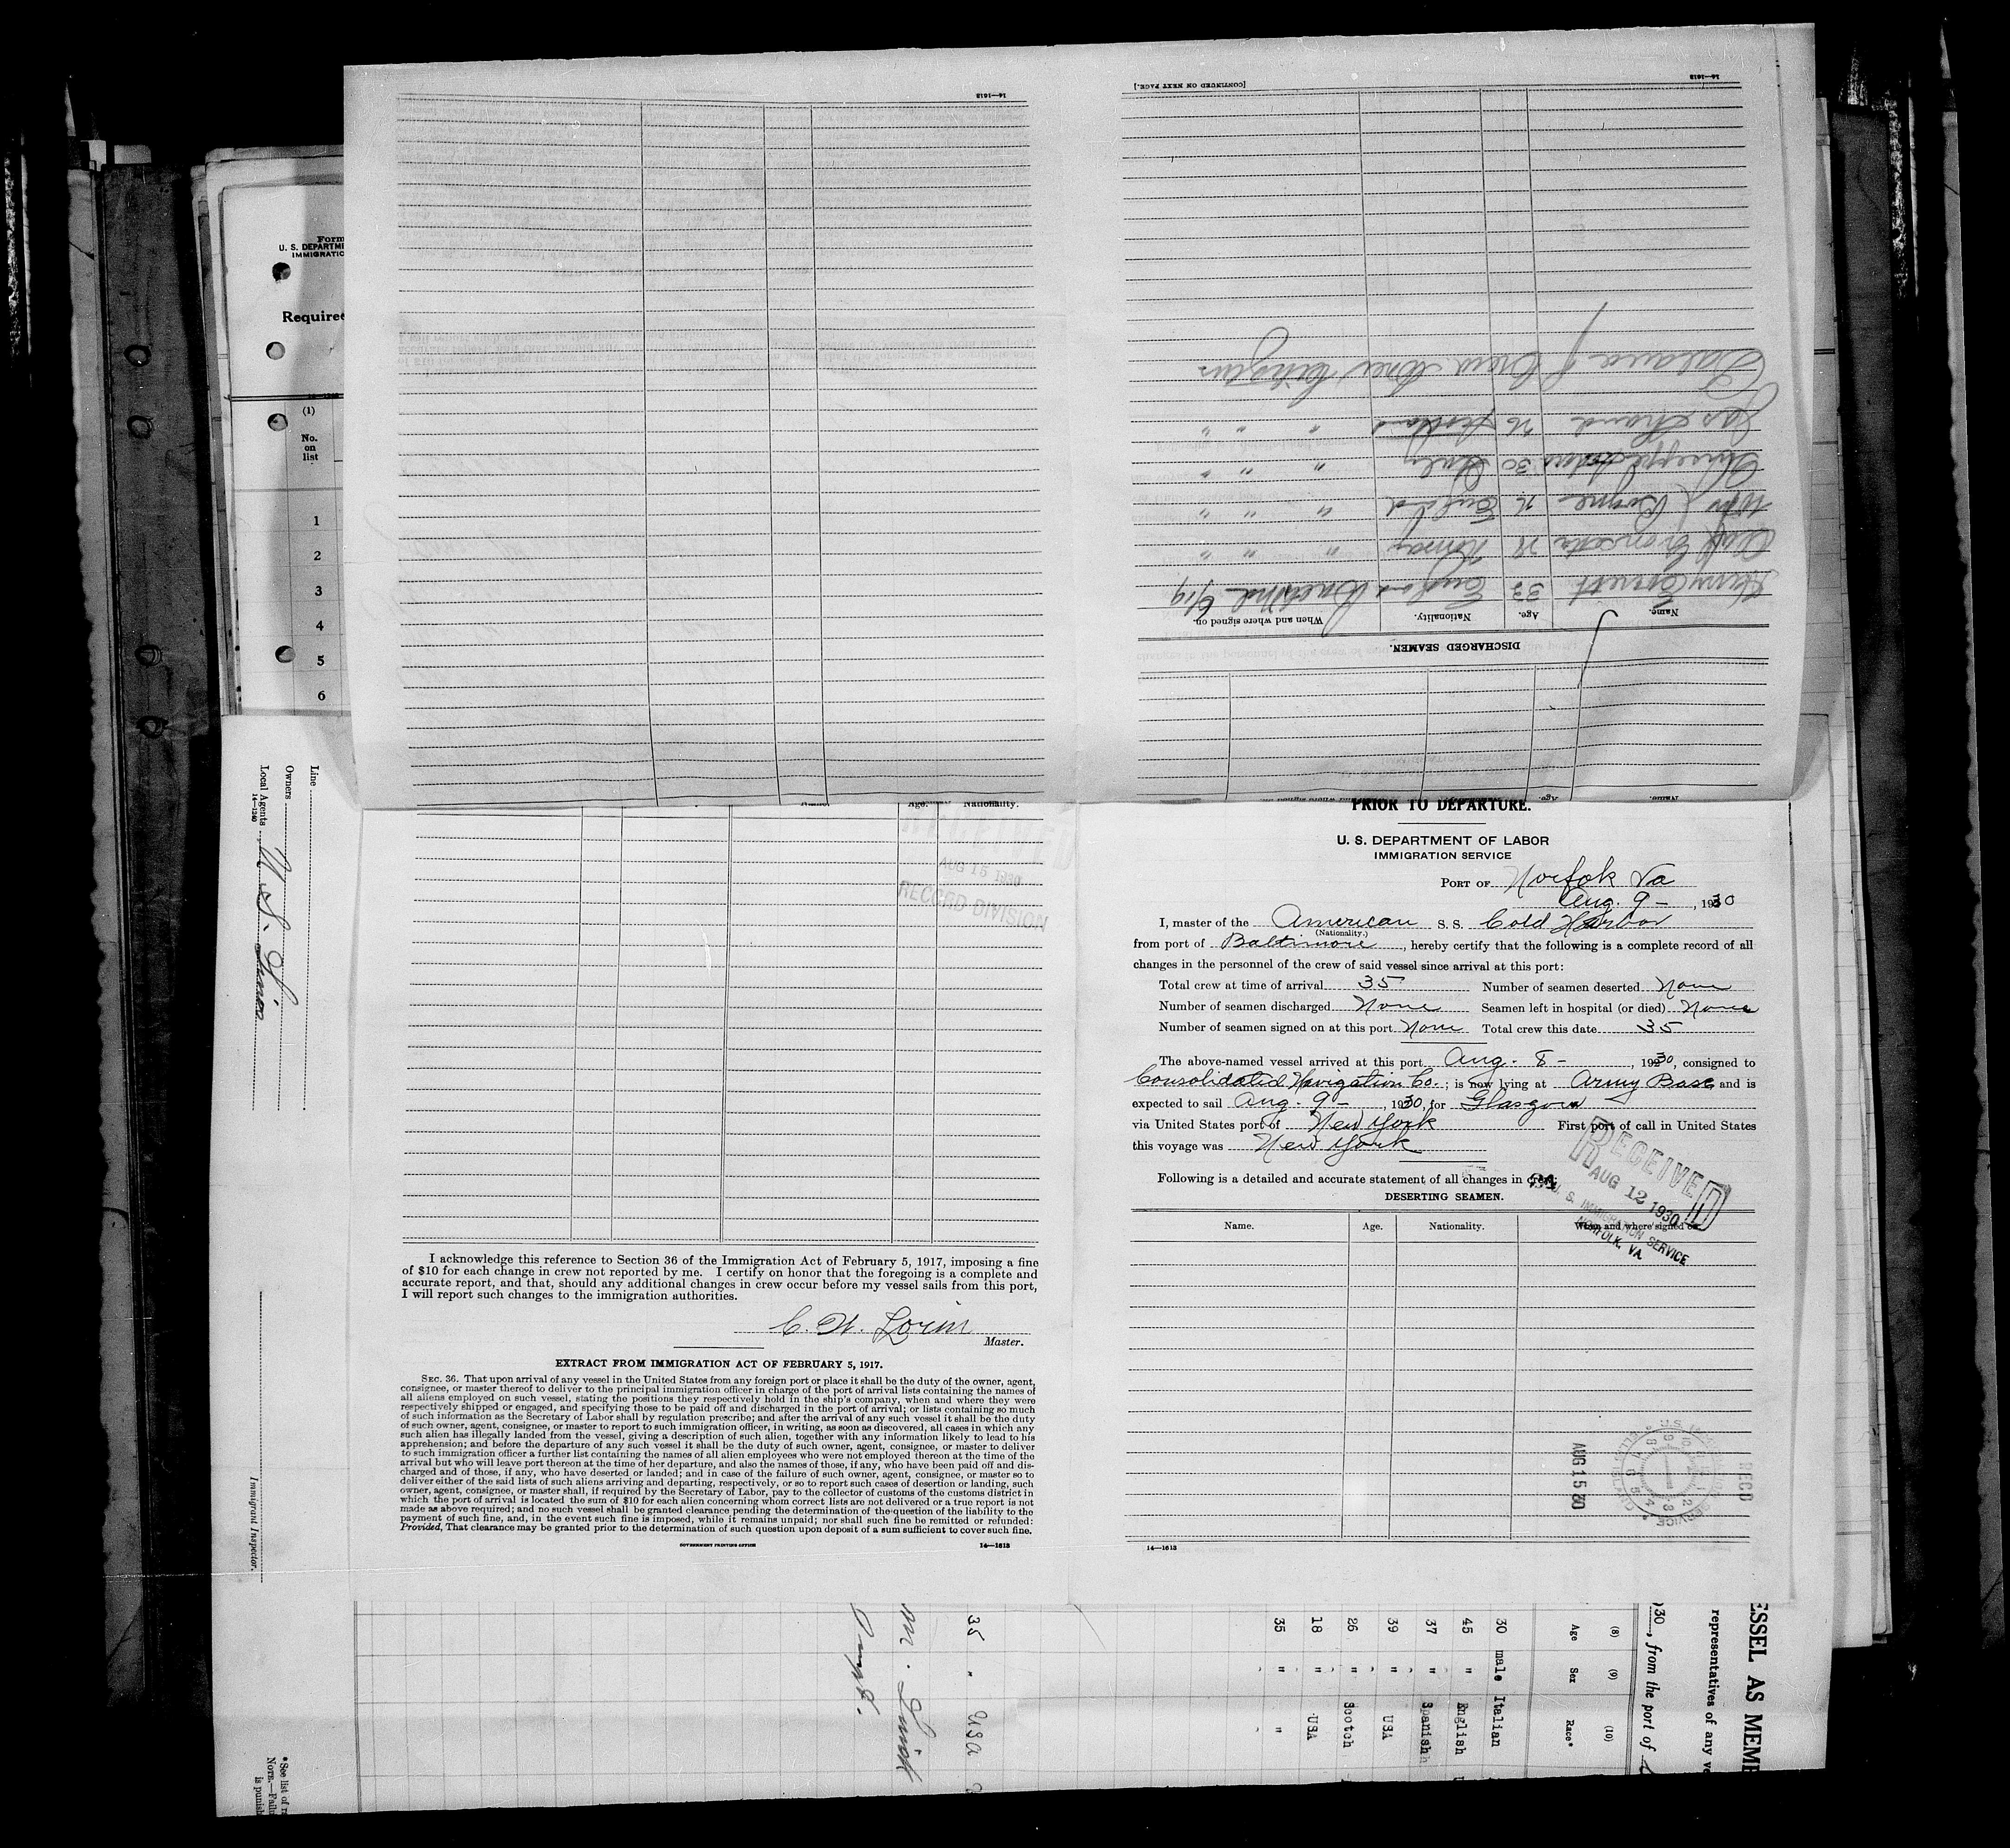 14—1613
[CONTINUED ON NEXT PAGE.]
14—1613
Form
U. S. DEPARTME
IMMIGRATIO
Require
(1)
No.
on
list
1
2
3
4
5
6
DISCHARGED SEAMEN.
Name. Age. Nationality. When and where signed on.
Harry 33 England 6/19
Olaf " " "
Wm J Boyne " " "
Giuseppe 30 Italy " " "
Jas 26 Scotland " " "
Balance of Crew were Citizens
Name. Age.
Line
Owners
Local Agents U. S. Lines
14—1240
Immigrant Inspector.
*See list of ra
NOTE.—Failu
is punish
Age. Nationality.
RECEIVED
AUG 15 1930
RECORD DIVISION
I acknowledge this reference to Section 36 of the Immigration Act of February 5, 1917, imposing a fine
of $10 for each change in crew not reported by me. I certify on honor that the foregoing is a complete and
accurate report, and that, should any additional changes in crew occur before my vessel sails from this port,
I will report such changes to the immigration authorities.
C. W.
Master.
EXTRACT FROM IMMIGRATION ACT OF FEBRUARY 5, 1917.
SEC. 36. That upon arrival of any vessel in the United States from any foreign port or place it shall be the duty of the owner, agent,
consignee, or master thereof to deliver to the principal immigration officer in charge of the port of arrival lists containing the names of
all aliens employed on such vessel, stating the positions they respectively hold in the ship's company, when and where they were
respectively shipped or engaged, and specifying those to be paid off and discharged in the port of arrival; or lists containing so much
of such information as the Secretary of Labor shall by regulation prescribe; and after the arrival of any such vessel it shall be the duty
of such owner, agent, consignee, or master to report to such immigration officer, in writing, as soon as discovered, all cases in which any
such alien has illegally landed from the vessel, giving a description of such alien, together with any information likely to lead to his
apprehension; and before the departure of any such vessel it shall be the duty of such owner, agent, consignee, or master to deliver
to such immigration officer a further list containing the names of all alien employees who were not employed thereon at the time of the
arrival but who will leave port thereon at the time of her departure, and also the names of those, if any, who have been paid off and dis-
charged and of those, if any, who have deserted or landed; and in case of the failure of such owner, agent, consignee, or master so to
deliver either of the said lists of such aliens arriving and departing, respectively, or so to report such cases of desertion or landing, such
owner, agent, consignee, or master shall, if required by the Secretary of Labor, pay to the collector of customs of the customs district in
which the port of arrival is located the sum of $10 for each alien concerning whom correct lists are not delivered or a true report is not
made as above required; and no such vessel shall be granted clearance pending the determination of the question of the liability to the
payment of such fine, and, in the event such fine is imposed, while it remains unpaid; nor shall such fine be remitted or refunded:
Provided, That clearance may be granted prior to the determination of such question upon deposit of a sum sufficient to cover such fine.
GOVERNMENT PRINTING OFFICE 14—1613
PRIOR TO DEPARTURE.
U. S. DEPARTMENT OF LABOR
IMMIGRATION SERVICE
PORT OF Norfok Va
Aug. 9 – , 1930
I, master of the American S. S. Cold Harbor
(Nationality.)
from port of Baltimore, hereby certify that the following is a complete record of all
changes in the personnel of the crew of said vessel since arrival at this port:
Total crew at time of arrival 35 Number of seamen deserted None
Number of seamen discharged None Seamen left in hospital (or died) None
Number of seamen signed on at this port None Total crew this date 35
The above-named vessel arrived at this port Aug. 8 – , 1930, consigned to
Consolidated Navigation Co.; is now lying at Army Base and is
expected to sail Aug. 9 – , 1930, for Glasgow
via United States port of New York First port of call in United States
this voyage was New York
Following is a detailed and accurate statement of all changes in crew:
DESERTING SEAMEN.
Name. Age. Nationality. When and where signed on.
RECEIVED
AUG 12 1930
U. S. IMMIGRATION SERVICE
NORFOLK, VA.
AUG 15 30
REC'D
14—1613
ESSEL AS MEMB
representatives of any ve
30, from the port of
(8) (9) (10)
Age Sex Race*
30 male Italian
45 " English
37 " Spanish
39 " USA
26 " Scotch
18 " USA
35 " "
35 " USA